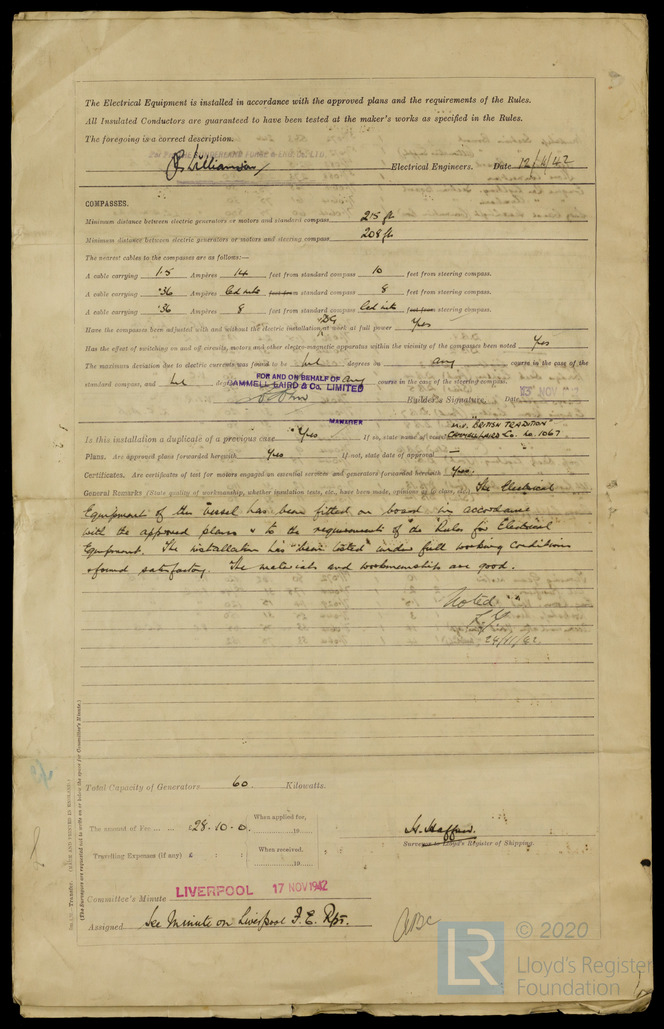 The Electrical Equipment is installed in accordance with the approved plans and the requirements of the Rules.
All Insulated Conductors are guaranteed to have been tested at the maker's works as specified in the Rules.
The foregoing is a correct description.
Electrical Engineers. Date 12/11/42
COMPASSES.
Minimum distance between electric generators or motors and standard compass 215 ft
Minimum distance between electric generators or motors and steering compass 208 ft
The nearest cables to the compasses are as follows:—
A cable carrying 1.5 Ampères 14 feet from standard compass 10 feet from steering compass.
A cable carrying .36 Ampères Led into feet from standard compass 8 feet from steering compass.
A cable carrying .36 Ampères 8 feet from standard compass Led into feet from steering compass.
Have the compasses been adjusted with and without the electric installation & DG at work at full power Yes
Has the effect of switching on and off circuits, motors and other electro-magnetic apparatus within the vicinity of the compasses been noted Yes
The maximum deviation due to electric currents was found to be Nil degrees on any course in the case of the
standard compass, and Nil degrees on any course in the case of the steering compass.
FOR AND ON BEHALF OF
CAMMELL LAIRD & Co. LIMITED
Builder's Signature. Date NOV
MANAGER
M.V. "BRITISH TRADITION"
Is this installation a duplicate of a previous case Yes If so, state name of vessel Cammell Laird Co. No. 1067
Plans. Are approved plans forwarded herewith Yes If not, state date of approval —
Certificates. Are certificates of test for motors engaged on essential services and generators forwarded herewith Yes.
General Remarks (State quality of workmanship, whether insulation tests, etc., have been made, opinions as to class, etc.) The Electrical
Equipment of this vessel has been fitted on board in accordance
with the approved plans & to the requirements of the Rules for Electrical
Equipment. The installation has been tested under full working conditions
& found satisfactory. The materials and workmanship are good.
Noted
24/11/42
Total Capacity of Generators 60 Kilowatts.
The amount of Fee ... ... £28.10.0. When applied for, 19
Travelling Expenses (if any) £ : : When received, 19
H. Stafford.
Surveyor to Lloyd's Register of Shipping.
LIVERPOOL 17 NOV 1942
Committee's Minute
Assigned See Minute on Liverpool F.E. Rpt.
(The Surveyors are requested not to write on or below the space for Committee's Minute.)
LR © 2020
Lloyd's Register
Foundation